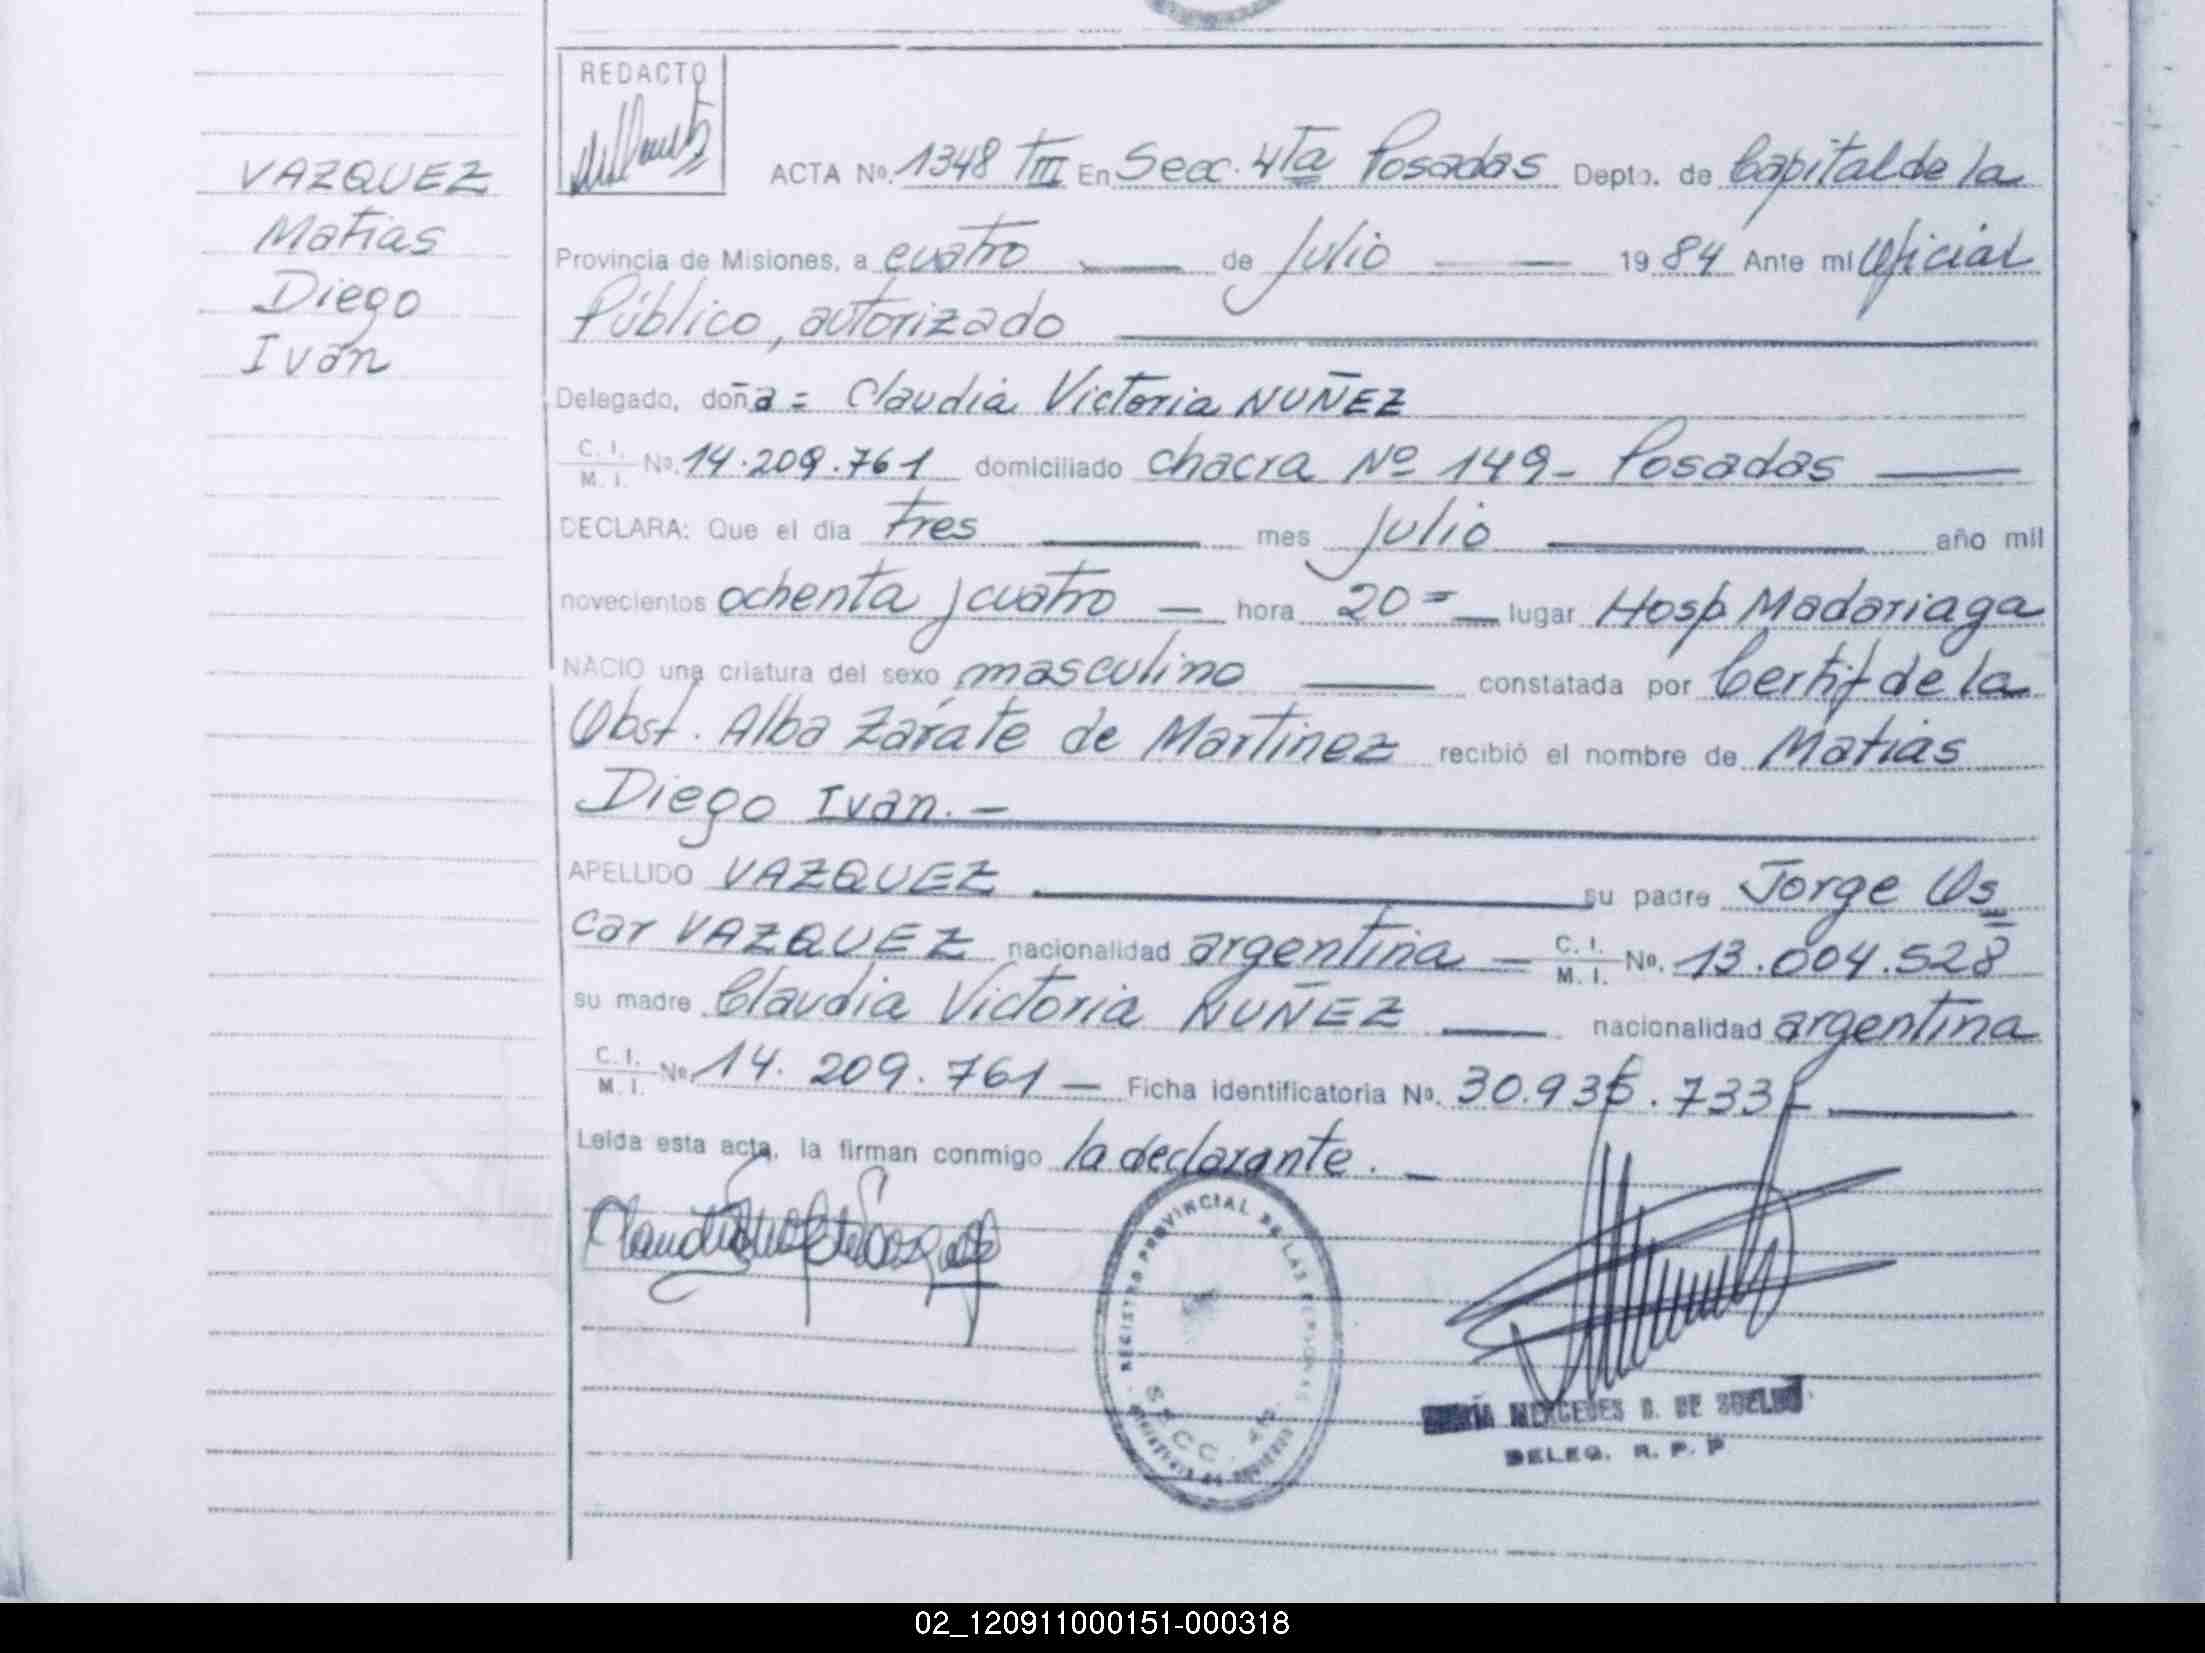 REDACTO
VAZQUEZ
Matias
Diego
Iván
ACTA Nº. 1348 TIII En Secc. 4ta Posadas Depto. de Capital de la
Provincia de Misiones, a cuatro de Julio 1984 Ante mi Oficial
Público, autorizado
Delegado, doña = Claudia Victoria NUÑEZ
C. I. M. I. Nº. 14.209.761 domiciliado chacra Nº 149- Posadas
DECLARA: Que el dia tres mes Julio año mil
novecientos ochenta y cuatro hora 20= lugar Hosp Madariaga
NACIO una criatura del sexo masculino constatada por Certif de la
Obst. Alba Zárate de Martinez recibió el nombre de Matias
Diego Ivan.-
APELLIDO VAZQUEZ su padre Jorge Os
car VAZQUEZ nacionalidad argentina C. I. M. I. Nº. 13.004.528
su madre Claudia Victoria NUÑEZ nacionalidad argentina
C. I. M. I. Nº. 14.209.761 Ficha identificatoria Nº. 30.936.733
Leída esta acta, la firman conmigo la declarante.
REGISTRO PROVINCIAL DE LAS PERSONAS
SECC. 4ta.
MARÍA MERCEDES D. DE
DELEG. R. P. P
02_120911000151-000318